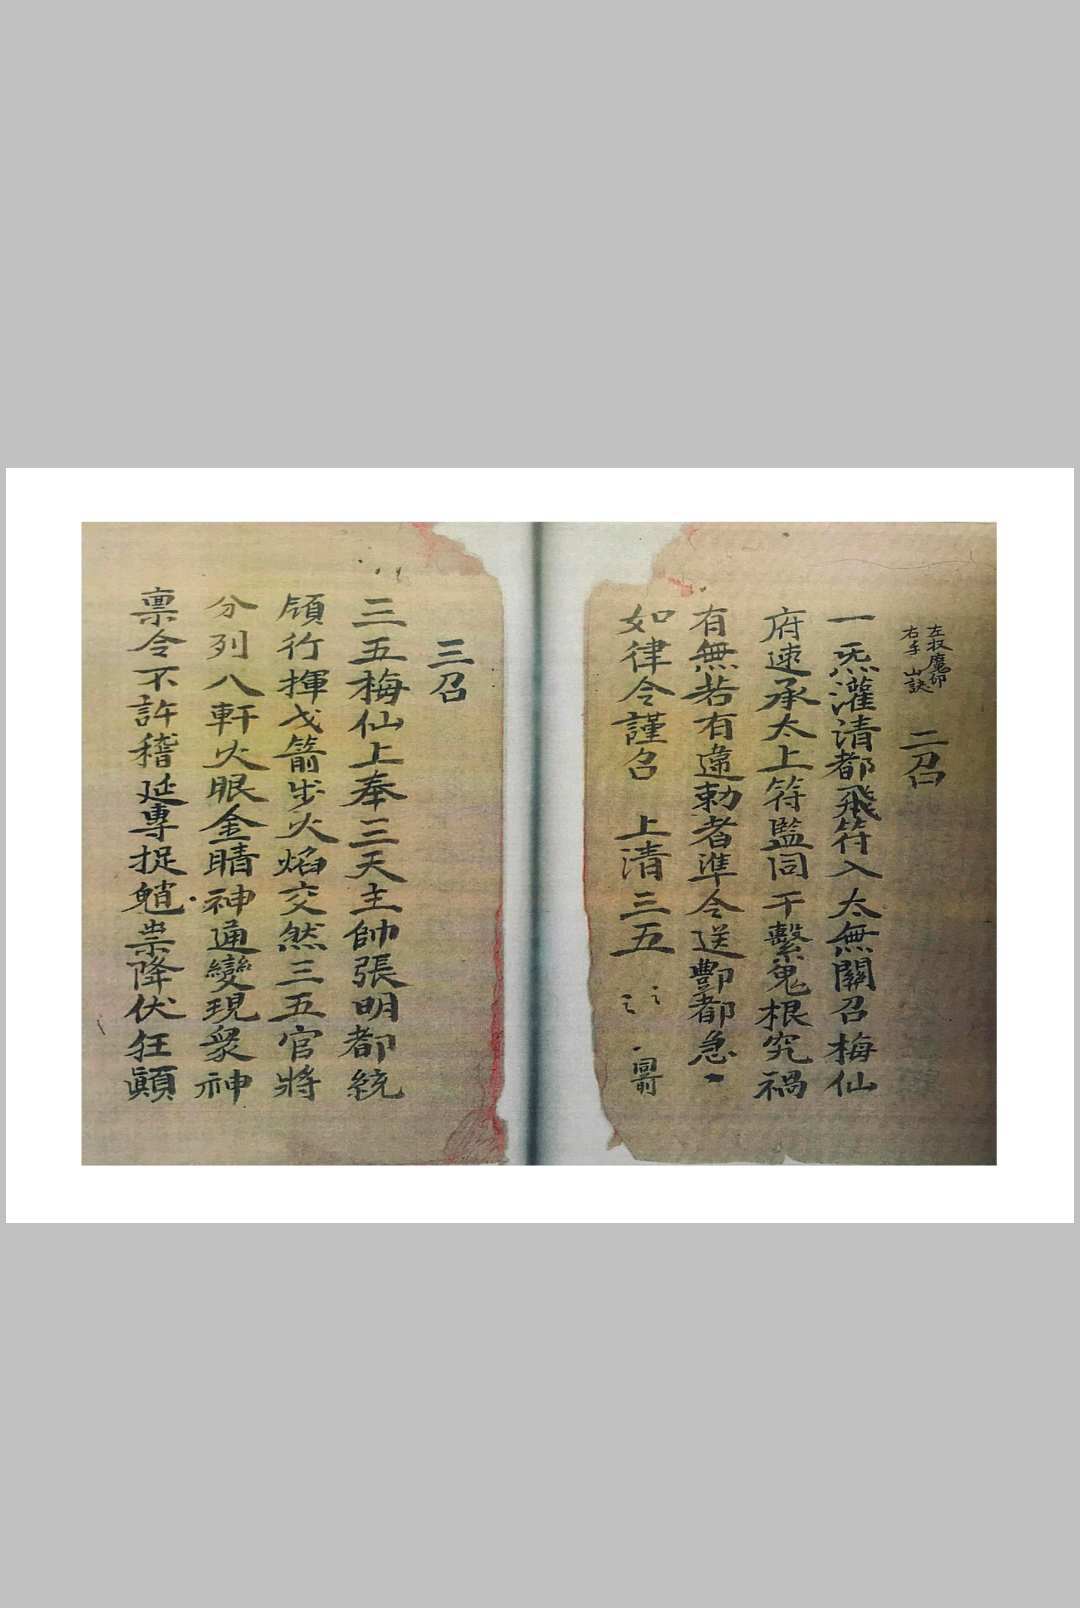 左扠魔印
右手山訣
二召
一炁灌清都飛符入太無關召梅仙
府速承太上符監同干繫鬼根究禍
有無若有違勅者準令送酆都急〻
如律令謹召 上清三五〻〻 同前
三召
三五梅仙上奉三天主帥張明都統
領行揮戈箭步火焰交然三五官將
分列八軒火眼金睛神通變現衆神
禀令不許稽延專捉魈祟降伏狂顛